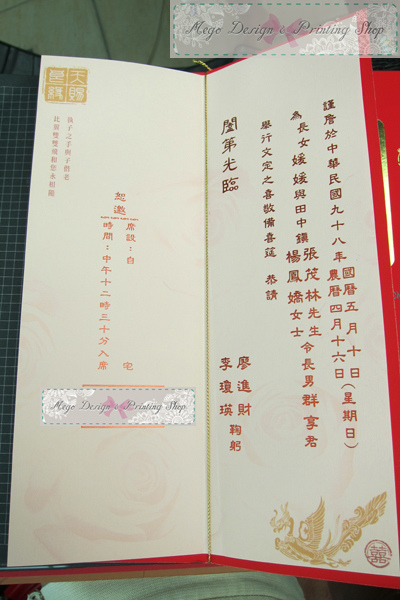 Mego Design & Printing Shop
謹詹於中華民國九十八年
國曆五月十日
農曆四月十六日(星期日)
為長女媛媛與田中鎮
張茂林先生
楊鳳嬌女士
令長男群享君
舉行文定之喜敬備喜筵 恭請
闔第光臨
廖進財
李瓊瑛
鞠躬
囍
天賜
良緣
執子之手與子偕老
比翼雙雙飛和您永相隨
恕邀
席設:自宅
時間:中午十二時三十分入席
Mego Design & Printing Shop